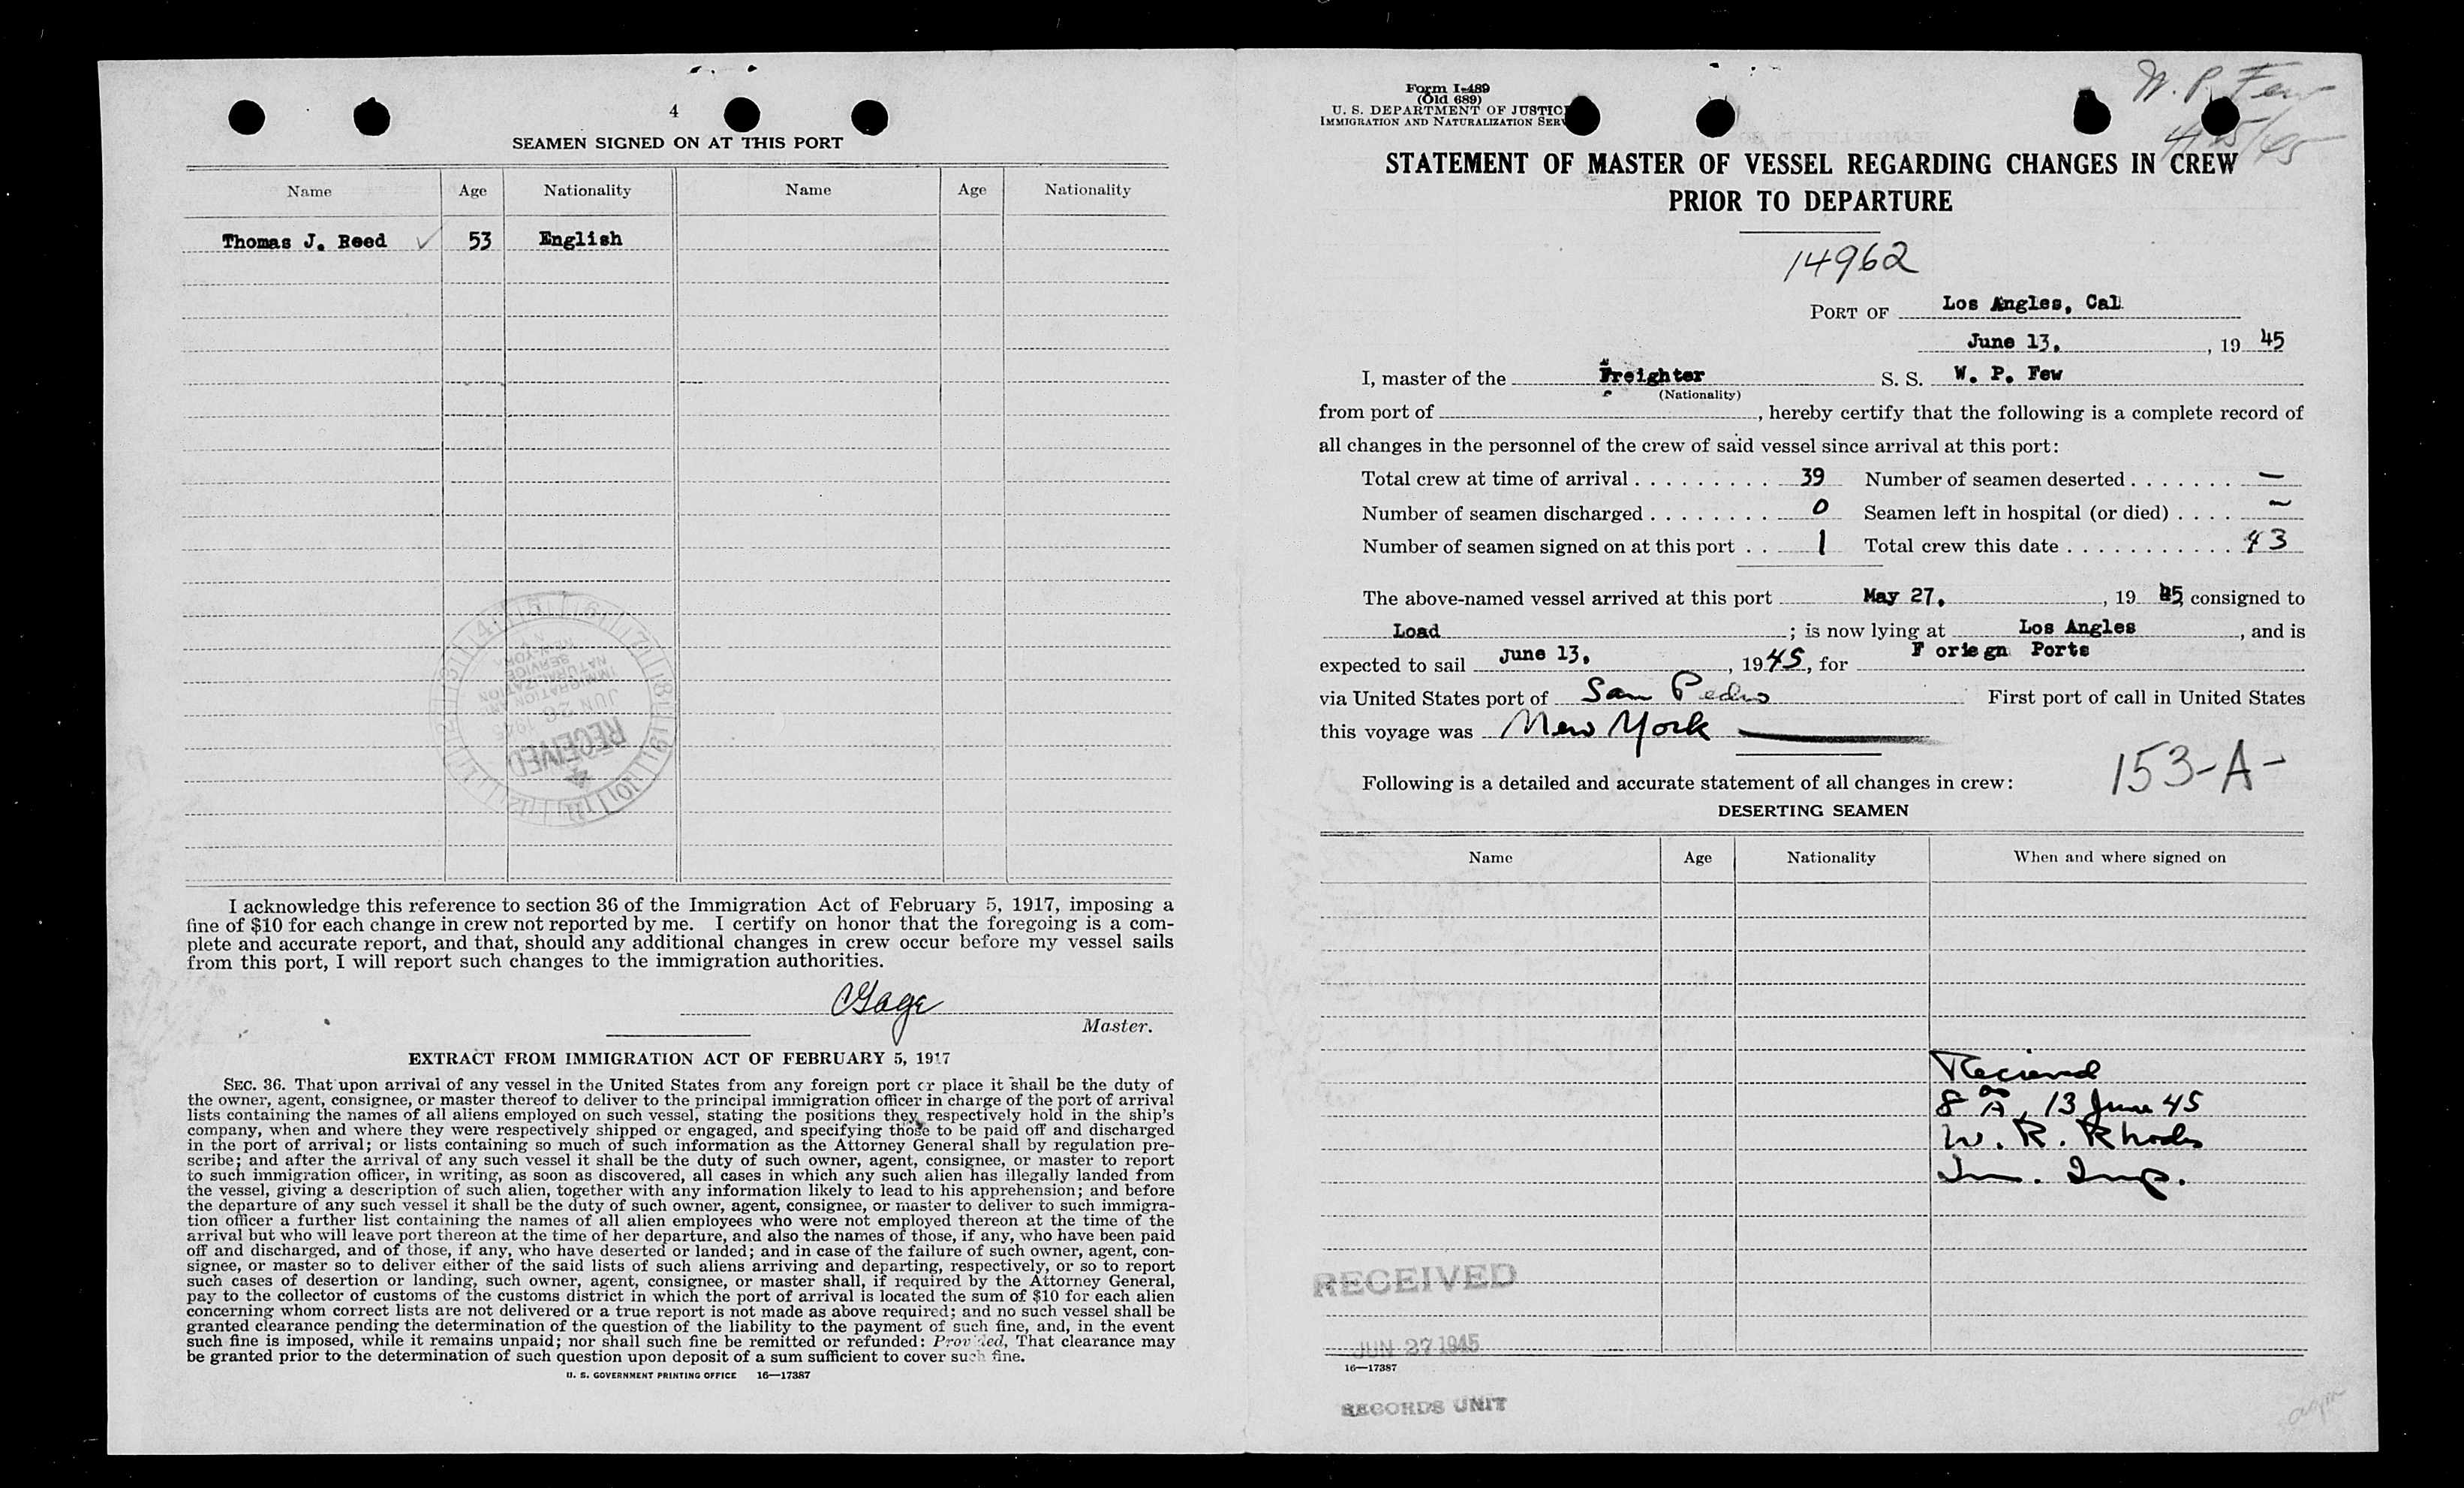 4
SEAMEN SIGNED ON AT THIS PORT
Name Age Nationality Name Age Nationality
Thomas J. Reed ✓ 53 English
RECEIVED
JUN 26 1945
IMMIGRATION
NATURALIZATION
SERVICE
I acknowledge this reference to section 36 of the Immigration Act of February 5, 1917, imposing a
fine of $10 for each change in crew not reported by me. I certify on honor that the foregoing is a com-
plete and accurate report, and that, should any additional changes in crew occur before my vessel sails
from this port, I will report such changes to the immigration authorities.
Gage
Master.
EXTRACT FROM IMMIGRATION ACT OF FEBRUARY 5, 1917
SEC. 36. That upon arrival of any vessel in the United States from any foreign port or place it shall be the duty of
the owner, agent, consignee, or master thereof to deliver to the principal immigration officer in charge of the port of arrival
lists containing the names of all aliens employed on such vessel, stating the positions they respectively hold in the ship's
company, when and where they were respectively shipped or engaged, and specifying those to be paid off and discharged
in the port of arrival; or lists containing so much of such information as the Attorney General shall by regulation pre-
scribe; and after the arrival of any such vessel it shall be the duty of such owner, agent, consignee, or master to report
to such immigration officer, in writing, as soon as discovered, all cases in which any such alien has illegally landed from
the vessel, giving a description of such alien, together with any information likely to lead to his apprehension; and before
the departure of any such vessel it shall be the duty of such owner, agent, consignee, or master to deliver to such immigra-
tion officer a further list containing the names of all alien employees who were not employed thereon at the time of the
arrival but who will leave port thereon at the time of her departure, and also the names of those, if any, who have been paid
off and discharged, and of those, if any, who have deserted or landed; and in case of the failure of such owner, agent, con-
signee, or master so to deliver either of the said lists of such aliens arriving and departing, respectively, or so to report
such cases of desertion or landing, such owner, agent, consignee, or master shall, if required by the Attorney General,
pay to the collector of customs of the customs district in which the port of arrival is located the sum of $10 for each alien
concerning whom correct lists are not delivered or a true report is not made as above required; and no such vessel shall be
granted clearance pending the determination of the question of the liability to the payment of such fine, and, in the event
such fine is imposed, while it remains unpaid; nor shall such fine be remitted or refunded: Provided, That clearance may
be granted prior to the determination of such question upon deposit of a sum sufficient to cover such fine.
U. S. GOVERNMENT PRINTING OFFICE 16—17387
Form I-489
(Old 689)
U. S. DEPARTMENT OF JUSTIC
IMMIGRATION AND NATURALIZATION SER
W. P. Few
STATEMENT OF MASTER OF VESSEL REGARDING CHANGES IN CREW
PRIOR TO DEPARTURE
14962
PORT OF Los Angles, Cal
June 13, , 19 45
I, master of the Freighter S. S. W. P. Few
(Nationality)
from port of , hereby certify that the following is a complete record of
all changes in the personnel of the crew of said vessel since arrival at this port:
Total crew at time of arrival . . . . . . . . . 39 Number of seamen deserted . . . . . . . —
Number of seamen discharged . . . . . . . . 0 Seamen left in hospital (or died) . . . . —
Number of seamen signed on at this port . . 1 Total crew this date . . . . . . . . . . . 43
The above-named vessel arrived at this port May 27, , 19 45 consigned to
Load ; is now lying at Los Angles , and is
expected to sail June 13, , 1945, for Foriegn Ports
via United States port of San Pedro First port of call in United States
this voyage was New York
Following is a detailed and accurate statement of all changes in crew:
153-A-
DESERTING SEAMEN
Name Age Nationality When and where signed on
Recieved
8 00 A, 13 June 45
W. R. Rhods
Im. Insp.
RECEIVED
JUN 27 1945
16—17387
RECORDS UNIT